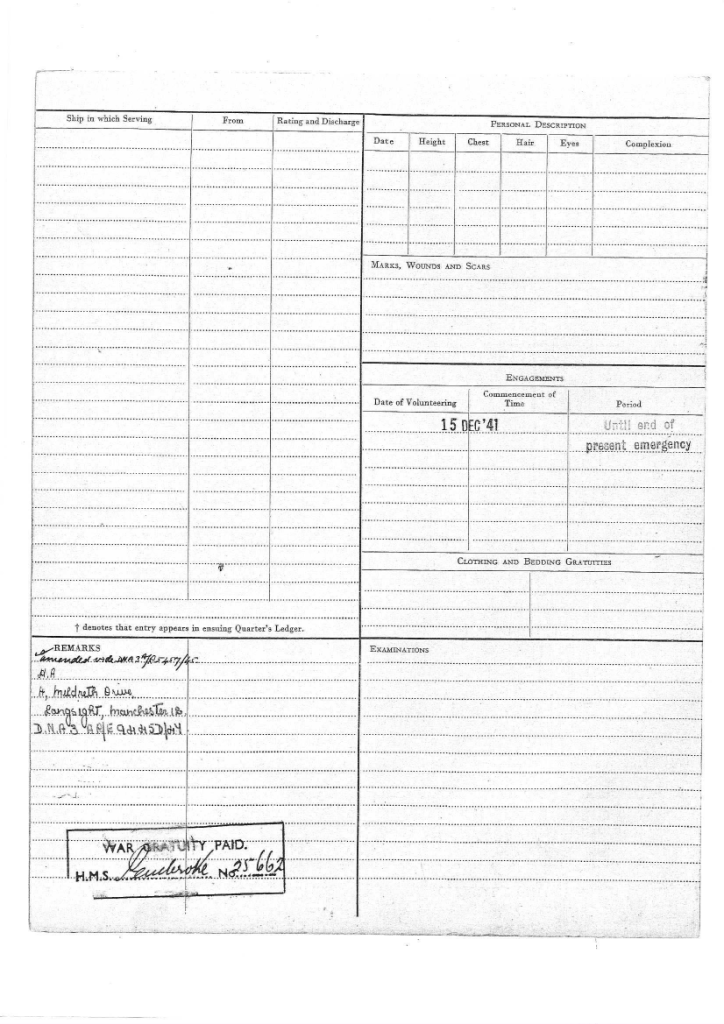 Ship in which Serving From Rating and Discharge
† denotes that entry appears in ensuing Quarter's Ledger.
PERSONAL DESCRIPTION
Date Height Chest Hair Eyes Complexion
MARKS, WOUNDS AND SCARS
ENGAGEMENTS
Date of Volunteering Commencement of Time Period
15 DEC '41 Until end of
present emergency
CLOTHING AND BEDDING GRATUITIES
REMARKS
amended vide
Meldreth Drive
Longsight, Manchester 12.
D.N.A 3
WAR GRATUITY PAID.
H.M.S. Pembroke No. 25662
EXAMINATIONS